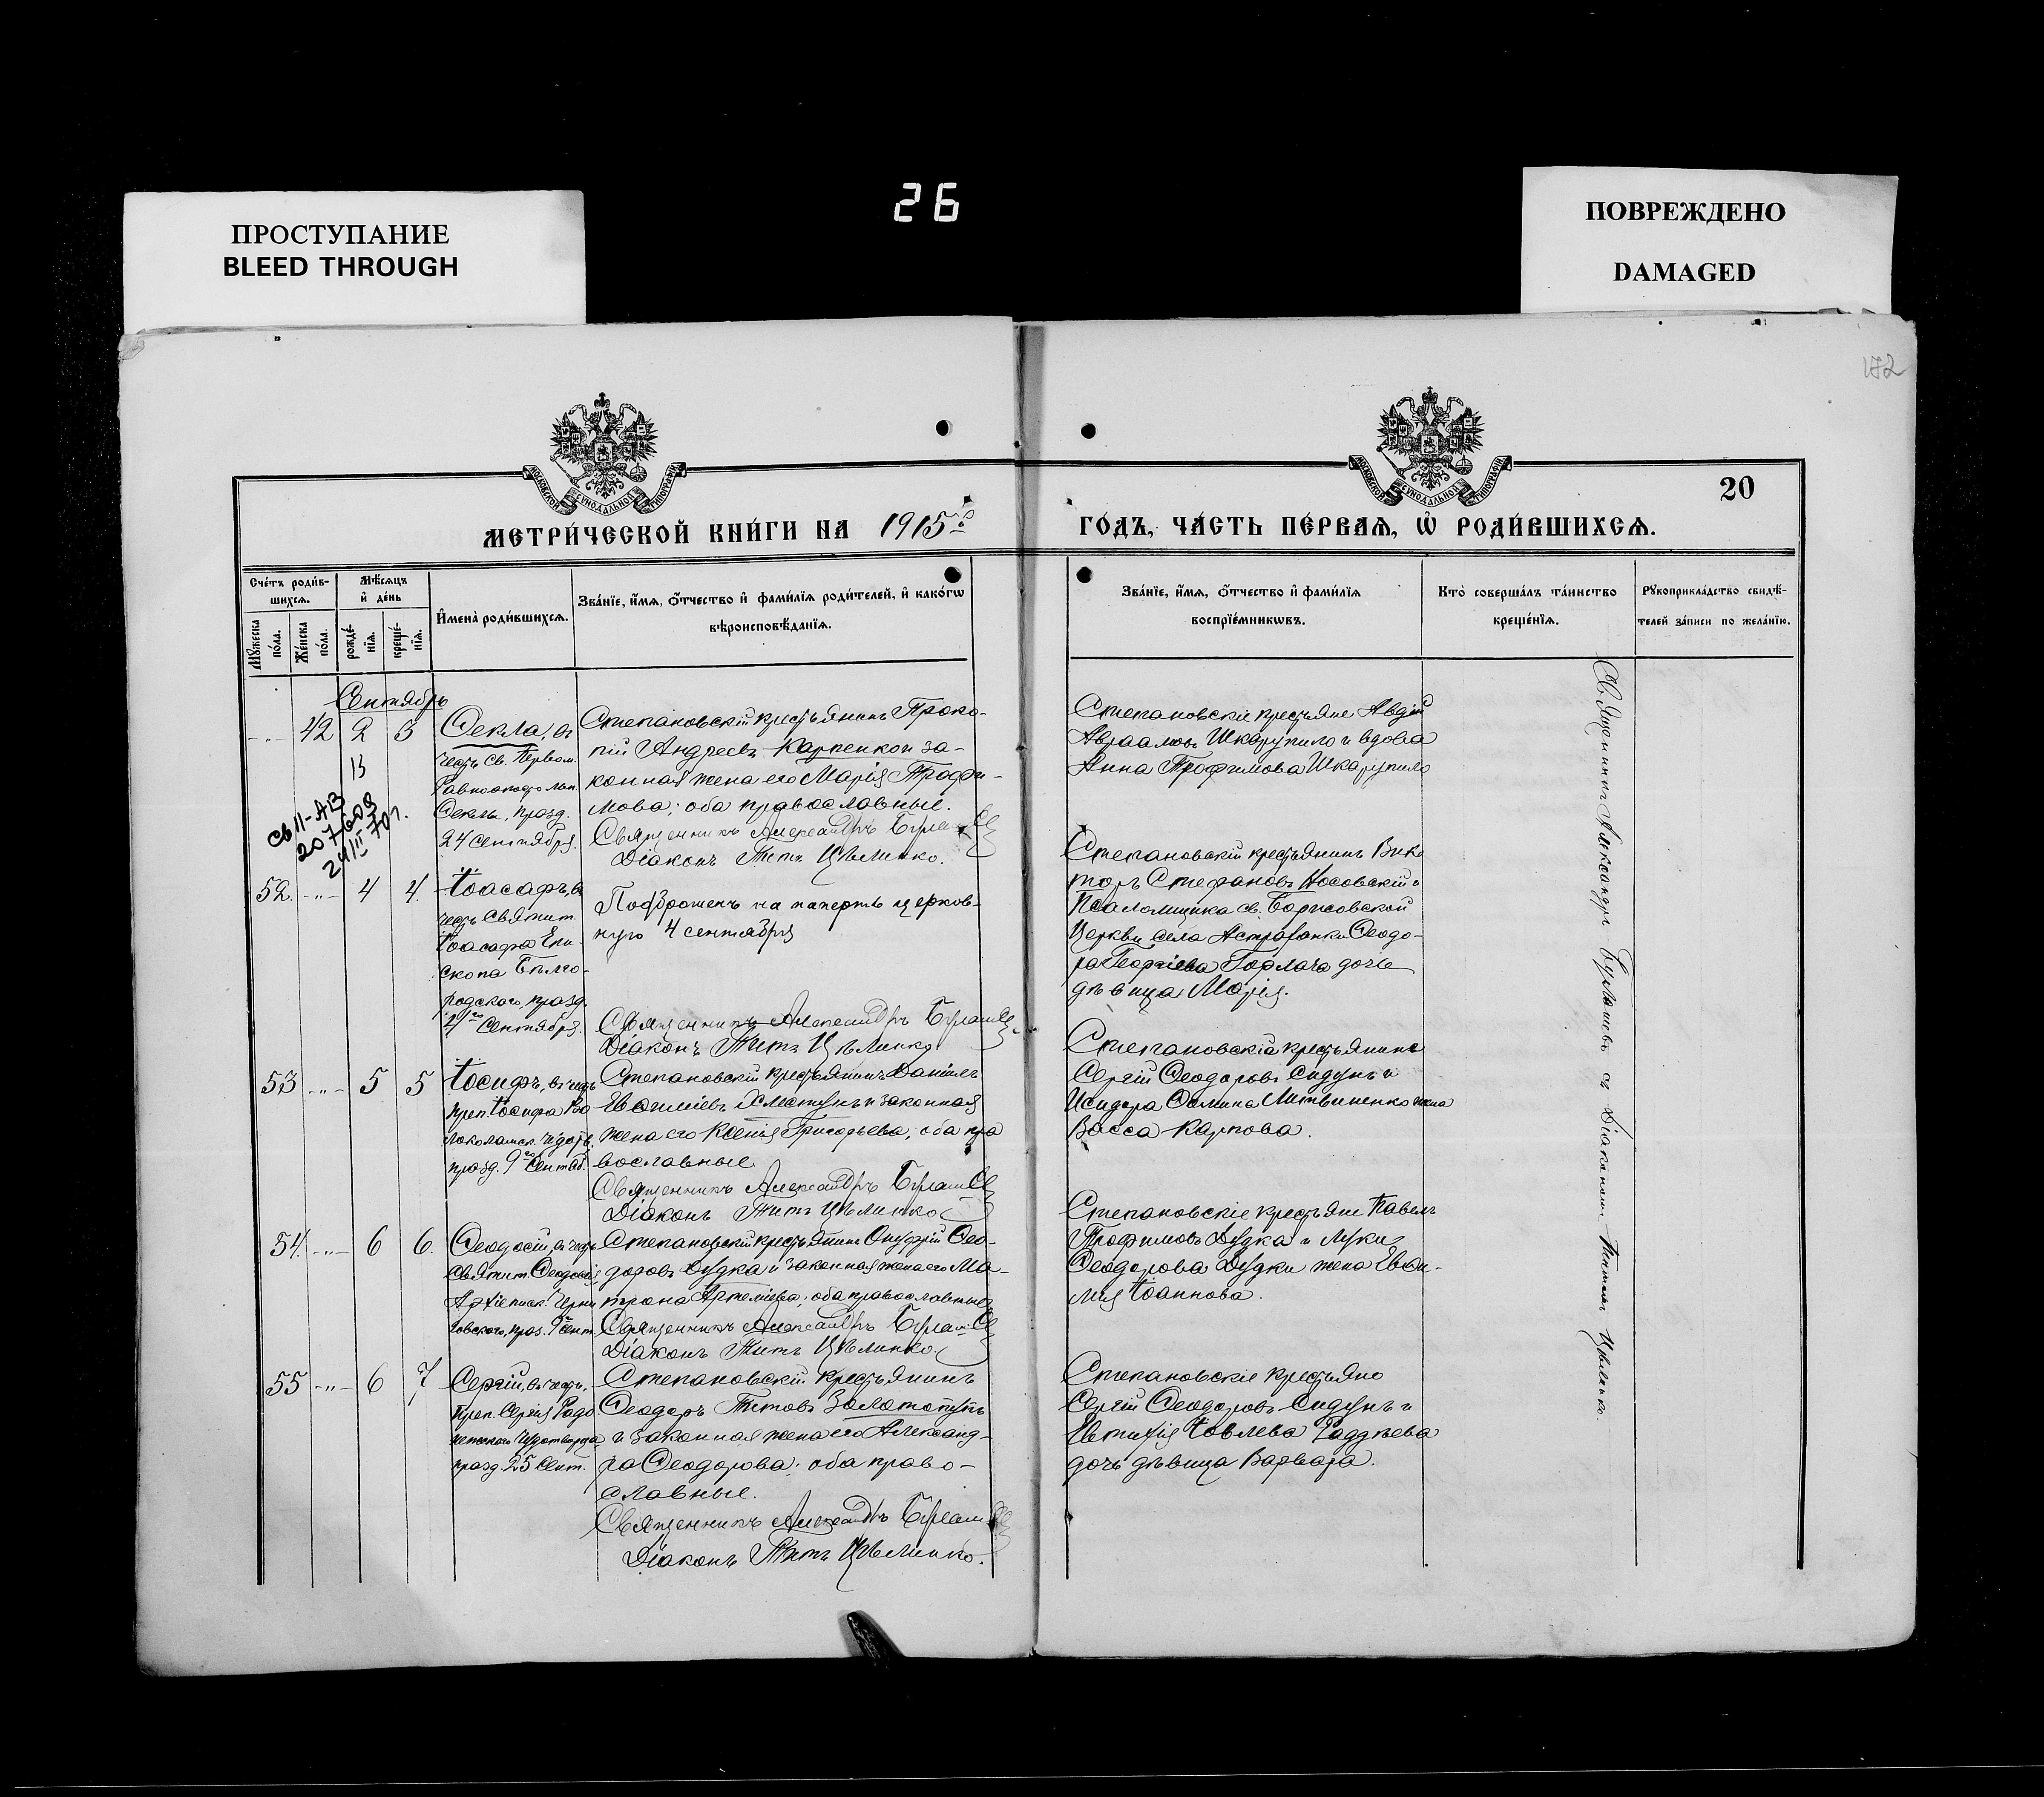 26
ПРОСТУПАНИЕ
BLEED THROUGH
ПОВРЕЖДЕНО
DAMAGED
172
МОСКОВСКОЙ СѴНОДАЛЬНОЙ ТИПОГРАФІИ
МОСКОВСКОЙ СѴНОДАЛЬНОЙ ТИПОГРАФІИ
20
МЕТРИ́ЧЕСКОЙ КНИ́ГИ НА 1915й
ГО́ДЪ, ЧА́СТЬ ПЕ́РВАЯ, Ѡ҆ РОДИ́ВШИХСЯ.
Сче́тъ роди́в-
шихся.
Мѣ́сяцъ
и҆ де́нь
Мꙋ́жеска по́ла.
Же́нска по́ла.
рожде́-
нїя.
креще́-
нїя.
И҆мена̀ роди́вшихся.
Зва́нїе, и҆́мя, ѻ҆́тчество и҆ фами́лїя роди́телей, и҆ како́гѡ
вѣроисповѣ́данїя.
Зва́нїе, и҆́мя, ѻ҆́тчество и҆ фами́лїя
воспрїе́мникѡвъ.
Кто̀ соверша́лъ та́инство
креще́нїя.
Рꙋкоприкла́дство свидѣ́-
телей за́писи по жела́нїю.
Сентябрь
42 2 3
Ѳекла, въ
честь св. Первом.
Равноапостольн.
Ѳеклы, празд.
24 сентября.
Степановскій крестьянинъ Проко-
пій Андреевъ Карпенко и за-
конная жена его Марія Трофи-
мова; оба православные.
Священникъ Александръ
Діаконъ Титъ Цѣлинко.
Степановскіе крестьяне Авдій
Авраамовъ Шкарупило и вдова
Анна Трофимова Шкарупило
13
св II-АВ
207609
24/II 70г.
52. 4 4.
Іоасафъ, въ
честь Святит.
Іоасафа Епи-
скопа Бѣлго-
родскаго, празд.
4го Сентября.
Подброшенъ на паперть церков-
ную 4 сентября
Священникъ Александръ
Діаконъ Титъ Цѣлинко
Степановскій крестьянинъ Вик-
торъ Стефановъ Носовскій и
Псаломщика св. Борисовской
Церкви села Астраханки Ѳеодо-
ра Георгіева Горлача дочь
дѣвица Марія.
53 5 5
Іосифъ, въ честь
преп. Іосифа Во-
локоламск. чудотв.
празд. 9го Сентяб.
Степановскій крестьянинъ Даніилъ
Евѳиміевъ Хластунъ и законная
жена его Ксенія Григорьева; оба пра
вославные
Священникъ Александръ
Діаконъ Титъ Цѣлинко
Степановскіе крестьянинъ
Сергій Ѳеодоровъ Сидунъ и
Исидора Ѳомина Литвиненко жена
Васса Карпова.
54. 6 6.
Ѳеодосій, въ честь
Святит. Ѳеодосія
Архіеписк. Черни
говскаго, праз. 9 Сент.
Степановскій крестьянинъ Онуфрій Ѳео-
доровъ Дудка и законная жена его Ма-
трона Артеміева; оба православные
Священникъ Александръ
Діаконъ Титъ Цѣлинко
Степановскіе крестьяне Павелъ
Трофимовъ Дудка и Луки
Ѳеодорова Дудки жена Евѳи-
мія Іоаннова.
55 6 7
Сергій, въ честь
Преп. Сергія Радо
нежскаго Чудотворца
празд. 25 Сент.
Степановскій крестьянинъ
Ѳеодоръ Титовъ Золотопупъ
и законная жена его Александ-
ра Ѳеодорова; оба право-
славные.
Священникъ Александръ
Діаконъ Титъ Цѣлинко.
Степановскіе крестьяне
Сергій Ѳеодоровъ Сидунъ и
Евтихія Іовлева дочь дѣвица Варвара.
Священникъ Александръ съ Діакономъ Титомъ Цѣлинко.